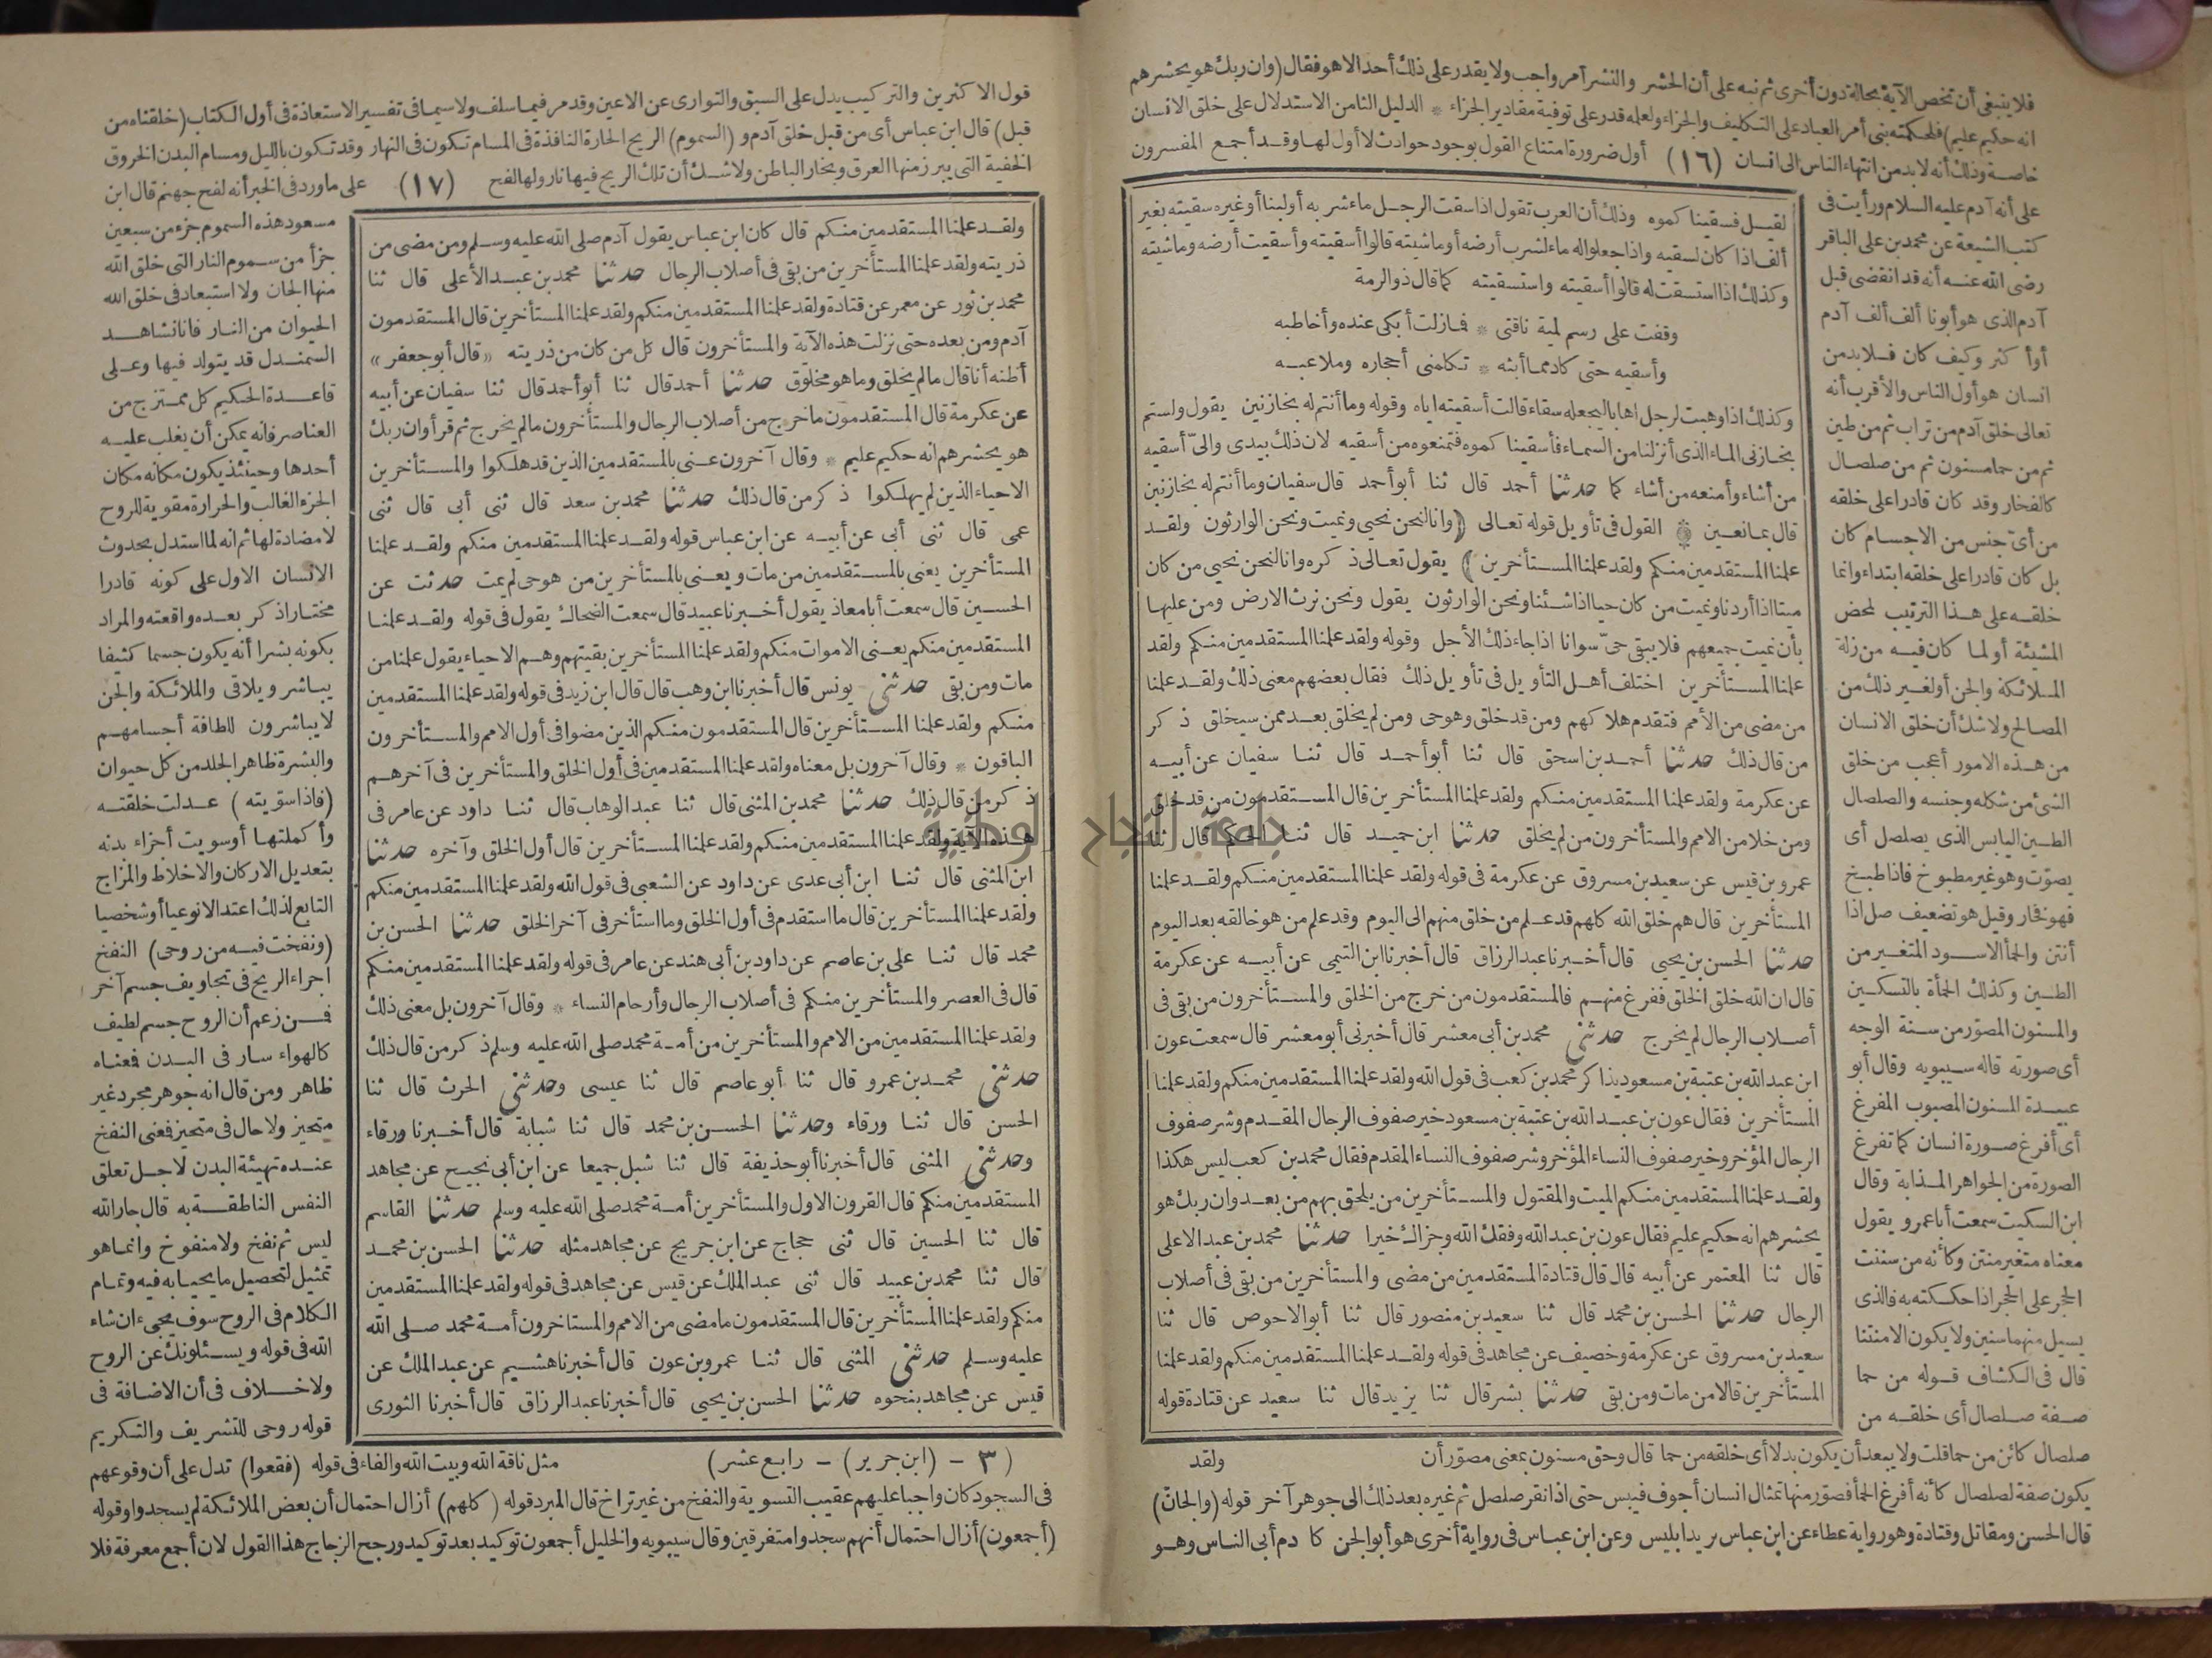 فلا ينبغي أن تخص الآية بحالة دون أخرى ثم نبه على أن الحشر والنشر أمر واجب ولا يقدر على ذلك أحد الا هو فقال (وان ربك هو يحشرهم
انه حكيم عليم) فلحكمته بنى أمر العباد على التكليف والجزاء ولعلمه قدر على توفية مقادير الجزاء * الدليل الثامن الاستدلال على خلق الانسان
خاصة وذلك أنه لا بد من انتهاء الناس الى انسان (١٦) أول ضرورة امتناع القول بوجود حوادث لا أول لها وقد أجمع المفسرون
على أنه آدم عليه السلام ورأيت في
كتب الشيعة عن محمد بن على الباقر
رضى الله عنه أنه قد انقضى قبل
آدم الذى هو أبونا ألف ألف آدم
أو أكثر وكيف كان فلا بد من
انسان هو أول الناس والأقرب أنه
تعالى خلق آدم من تراب ثم من طين
ثم من حما مسنون ثم من صلصال
كالفخار وقد كان قادرا على خلقه
من أىّ جنس من الاجسام كان
بل كان قادرا على خلقه ابتداء وانما
خلقه على هذا الترتيب لمحض
المشيئة أو لما كان فيه من زلة
الملائكة والجن أو لغير ذلك من
المصالح ولا شك أن خلق الانسان
من هذه الامور أعجب من خلق
الشئ من شكله وجنسه والصلصال
الطين اليابس الذى يصلصل أى
يصوّت وهو غير مطبوخ فاذا طبخ
فهو فخار وقيل هو تضعيف صل اذا
أنتن والحمأ الاسود المتغير من
الطين وكذلك الحمأة بالتسكين
والمسنون المصوّر من سنة الوجه
أى صورته قاله سيبويه وقال أبو
عبيدة المسنون المصبوب المفرغ
أى أفرغ صورة انسان كما تفرغ
الصورة من الجواهر المذابة وقال
ابن السكيت سمعت أبا عمرو يقول
معناه متغير منتن وكأنه من سننت
الحجر على الحجر اذا حككته به فالذى
يسيل منهما سنين ولا يكون الا منتنا
قال في الكشاف قوله من حما
صفة صلصال أى خلقه من
لقيل فسقينا كموه وذلك أن العرب تقول اذا سقت الرجل ماء شربه أو لبنا أو غيره سقيته بغير
ألف اذا كان لسقيه واذا جعلوا له ماء لشرب أرضه أو ماشيته قالوا أسقيته وأسقيت أرضه وماشيته
وكذلك اذا استسقت له قالوا أسقيته واستسقيته كما قال ذو الرمة
وقفت على رسم لمية ناقتى * فما زلت أبكى عنده وأخاطبه
وأسقيه حتى كاد مما أبثه * تكلمنى أحجاره وملاعبه
وكذلك اذا وهبت لرجل اهابا ليجعله سقاء قالت أسقيته اياه وقوله وما أنتم له بخازنين يقول ولستم
بخازنى الماء الذى أنزلنا من السماء فأسقينا كموه فتمنعوه من أسقيه لان ذلك بيدى والىّ أسقيه
من أشاء وأمنعه من أشاء كما حدثنا أحمد قال ثنا أبو أحمد قال سفيان وما أنتم له بخازنين
قال بمانعين * القول في تأويل قوله تعالى (وانا لنحن نحيى ونميت ونحن الوارثون ولقد
علمنا المستقدمين منكم ولقد علمنا المستأخرين) يقول تعالى ذكره وانا لنحن نحيى من كان
ميتا اذا أردنا ونميت من كان حيا اذا شئنا ونحن الوارثون يقول ونحن نرث الارض ومن عليها
بأن نميت جميعهم فلا يبقى حىّ سوانا اذا جاء ذلك الأجل وقوله ولقد علمنا المستقدمين منكم ولقد
علمنا المستأخرين اختلف أهل التأويل في تأويل ذلك فقال بعضهم معنى ذلك ولقد علمنا
من مضى من الأمم فتقدم هلاكهم ومن قد خلق وهو حى ومن لم يخلق بعد ممن سيخلق ذكر
من قال ذلك حدثنا أحمد بن اسحق قال ثنا أبو أحمد قال ثنا سفيان عن أبيه
عن عكرمة ولقد علمنا المستقدمين منكم ولقد علمنا المستأخرين قال المستقدمون من قد خلق
ومن خلا من الامم والمستأخرون من لم يخلق حدثنا ابن حميد قال ثنا الحكم قال ثنا
عمرو بن قيس عن سعيد بن مسروق عن عكرمة في قوله ولقد علمنا المستقدمين منكم ولقد علمنا
المستأخرين قال هم خلق الله كلهم قد علم من خلق منهم الى اليوم وقد علم من هو خالقه بعد اليوم
حدثنا الحسن بن يحيى قال أخبرنا عبد الرزاق قال أخبرنا ابن التيمى عن أبيه عن عكرمة
قال ان الله خلق الخلق ففرغ منهم فالمستقدمون من خرج من الخلق والمستأخرون من بقى في
أصلاب الرجال لم يخرج حدثنى محمد بن أبى معشر قال أخبرنى أبو معشر قال سمعت عون
ابن عبد الله بن عتبة بن مسعود يذاكر محمد بن كعب في قول الله ولقد علمنا المستقدمين منكم ولقد علمنا
المستأخرين فقال عون بن عبد الله بن عتبة بن مسعود خير صفوف الرجال المقدم وشر صفوف
الرجال المؤخر وخير صفوف النساء المؤخر وشر صفوف النساء المقدم فقال محمد بن كعب ليس هكذا
ولقد علمنا المستقدمين منكم الميت والمقتول والمستأخرين من يلحق بهم من بعد وان ربك هو
يحشرهم انه حكيم عليم فقال عون بن عبد الله وفقك الله وجزاك خيرا حدثنا محمد بن عبد الاعلى
قال ثنا المعتمر عن أبيه قال قال قتادة المستقدمين من مضى والمستأخرين من بقى في أصلاب
الرجال حدثنا الحسن بن محمد قال ثنا سعيد بن منصور قال ثنا أبو الاحوص قال ثنا
سعيد بن مسروق عن عكرمة وخصيف عن مجاهد في قوله ولقد علمنا المستقدمين منكم ولقد علمنا
المستأخرين قالا من مات ومن بقى حدثنا بشر قال ثنا يزيد قال ثنا سعيد عن قتادة قوله
صلصال كائن من حما قلت ولا يبعد أن يكون بدلا أى خلقه من حما قال وحق مسنون بمعنى مصوّر أن ولقد
يكون صفة لصلصال كأنه أفرغ الحمأ فصوّر منها تمثال انسان أجوف فيبس حتى اذا نقر صلصل ثم غيره بعد ذلك الى جوهر آخر قوله (والجانّ)
قال الحسن ومقاتل وقتادة وهو رواية عطاء عن ابن عباس يريد ابليس وعن ابن عباس في رواية أخرى هو أبو الجن كا دم أبى الناس وهو
قول الاكثرين والتركيب يدل على السبق والتوارى عن الاعين وقد مر فيما سلف ولا سيما في تفسير الاستعاذة في أول الكتاب (خلقناه من
قبل) قال ابن عباس أى من قبل خلق آدم و(السموم) الريح الحارة النافذة في المسام تكون في النهار وقد تكون بالليل ومسام البدن الخروق
الخفية التى يبرز منها العرق وبخار الباطن ولا شك أن تلك الريح فيها نار ولها لفح (١٧) على ما ورد في الخبر أنه لفح جهنم قال ابن
ولقد علمنا المستقدمين منكم قال كان ابن عباس يقول آدم صلى الله عليه وسلم ومن مضى من
ذريته ولقد علمنا المستأخرين من بقى في أصلاب الرجال حدثنا محمد بن عبد الأعلى قال ثنا
محمد بن ثور عن معمر عن قتادة ولقد علمنا المستقدمين منكم ولقد علمنا المستأخرين قال المستقدمون
آدم ومن بعده حتى نزلت هذه الآية والمستأخرون قال كل من كان من ذريته «قال أبو جعفر»
أظنه أنا قال ما لم يخلق وما هو مخلوق حدثنا أحمد قال ثنا أبو أحمد قال ثنا سفيان عن أبيه
عن عكرمة قال المستقدمون ما خرج من أصلاب الرجال والمستأخرون ما لم يخرج ثم قرأ وان ربك
هو يحشرهم انه حكيم عليم * وقال آخرون عنى بالمستقدمين الذين قد هلكوا والمستأخرين
الاحياء الذين لم يهلكوا ذكر من قال ذلك حدثنا محمد بن سعد قال ثنى أبى قال ثنى
عمى قال ثنى أبى عن أبيه عن ابن عباس قوله ولقد علمنا المستقدمين منكم ولقد علمنا
المستأخرين يعنى بالمستقدمين من مات ويعنى بالمستأخرين من هو حى لم يمت حدثت عن
الحسين قال سمعت أبا معاذ يقول أخبرنا عبيد قال سمعت الضحاك يقول في قوله ولقد علمنا
المستقدمين منكم يعنى الاموات منكم ولقد علمنا المستأخرين بقيتهم وهم الاحياء يقول علمنا من
مات ومن بقى حدثنى يونس قال أخبرنا ابن وهب قال قال ابن زيد في قوله ولقد علمنا المستقدمين
منكم ولقد علمنا المستأخرين قال المستقدمون منكم الذين مضوا في أول الامم والمستأخرون
الباقون * وقال آخرون بل معناه ولقد علمنا المستقدمين في أول الخلق والمستأخرين في آخرهم
ذكر من قال ذلك حدثنا محمد بن المثنى قال ثنا عبد الوهاب قال ثنا داود عن عامر في
هذه الآية ولقد علمنا المستقدمين منكم ولقد علمنا المستأخرين قال أول الخلق وآخره حدثنا
ابن المثنى قال ثنا ابن أبى عدى عن داود عن الشعبى في قول الله ولقد علمنا المستقدمين منكم
ولقد علمنا المستأخرين قال ما استقدم في أول الخلق وما استأخر في آخر الخلق حدثنا الحسن بن
محمد قال ثنا على بن عاصم عن داود بن أبى هند عن عامر في قوله ولقد علمنا المستقدمين منكم
قال في العصر والمستأخرين منكم في أصلاب الرجال وأرحام النساء * وقال آخرون بل معنى ذلك
ولقد علمنا المستقدمين من الامم والمستأخرين من أمة محمد صلى الله عليه وسلم ذكر من قال ذلك
حدثنى محمد بن عمرو قال ثنا أبو عاصم قال ثنا عيسى وحدثنى الحرث قال ثنا
الحسن قال ثنا ورقاء وحدثنا الحسن بن محمد قال ثنا شبابة قال أخبرنا ورقاء
وحدثنى المثنى قال أخبرنا أبو حذيفة قال ثنا شبل جميعا عن ابن أبى نجيح عن مجاهد
المستقدمين منكم قال القرون الاول والمستأخرين أمة محمد صلى الله عليه وسلم حدثنا القاسم
قال ثنا الحسين قال ثنى حجاج عن ابن جريج عن مجاهد مثله حدثنا الحسن بن محمد
قال ثنا محمد بن عبيد قال ثنى عبد الملك عن قيس عن مجاهد في قوله ولقد علمنا المستقدمين
منكم ولقد علمنا المستأخرين قال المستقدمون ما مضى من الامم والمستاخرون أمة محمد صلى الله
عليه وسلم حدثنى المثنى قال ثنا عمرو بن عون قال أخبرنا هشيم عن عبد الملك عن
قيس عن مجاهد بنحوه حدثنا الحسن بن يحيى قال أخبرنا عبد الرزاق قال أخبرنا الثورى
مسعود هذه السموم جزء من سبعين
جزأ من سموم النار التى خلق الله
منها الجان ولا استبعاد في خلق الله
الحيوان من النار فانا نشاهد
السمندل قد يتولد فيها وعلى
قاعدة الحكيم كل ممتزج من
العناصر فانه يمكن أن يغلب عليه
أحدها وحينئذ يكون مكانه مكان
الجزء الغالب والحرارة مقوية للروح
لا مضادة لها ثم انه لما استدل بحدوث
الانسان الاول على كونه قادرا
مختارا ذكر بعده واقعته والمراد
بكونه بشرا أنه يكون جسما كثيفا
يباشر ويلاقى والملائكة والجن
لا يباشرون للطافة أجسامهم
والبشرة ظاهر الجلد من كل حيوان
(فاذا سوّيته) عدلت خلقته
وأكملتها أو سويت أجزاء بدنه
بتعديل الاركان والاخلاط والمزاج
التابع لذلك اعتدالا نوعيا أو شخصيا
(ونفخت فيه من روحى) النفخ
اجراء الريح في تجاويف جسم آخر
فمن زعم أن الروح جسم لطيف
كالهواء سار في البدن فمعناه
ظاهر ومن قال انه جوهر مجرد غير
متحيز ولا حال في متحيز فمعنى النفخ
عنده تهيئة البدن لاجل تعلق
النفس الناطقة به قال جار الله
ليس ثم نفخ ولا منفوخ وانما هو
تمثيل لتحصيل ما يحيا به فيه وتمام
الكلام في الروح سوف يجىء ان شاء
الله في قوله ويسئلونك عن الروح
ولا خلاف في أن الاضافة في
قوله روحى للتشريف والتكريم
(٣ - (ابن جرير) - رابع عشر) مثل ناقة الله وبيت الله والفاء في قوله (فقعوا) تدل على أن وقوعهم
في السجود كان واجبا عليهم عقيب التسوية والنفخ من غير تراخ قال المبرد قوله (كلهم) أزال احتمال أن بعض الملائكة لم يسجدوا وقوله
(أجمعون) أزال احتمال أنهم سجدوا متفرقين وقال سيبويه والخليل أجمعون توكيد بعد توكيد ورجح الزجاج هذا القول لان أجمع معرفة فلا
جامعة النجاح الوطنية